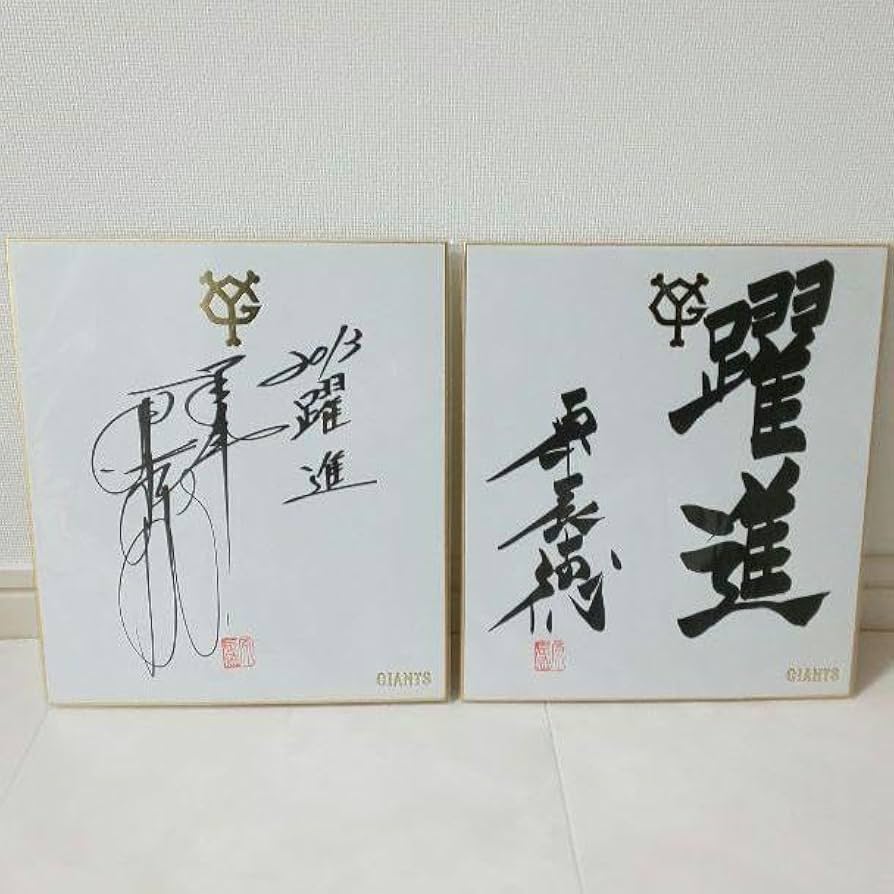 YG
2013
躍進
GIANTS
YG
躍進
原辰徳
GIANTS